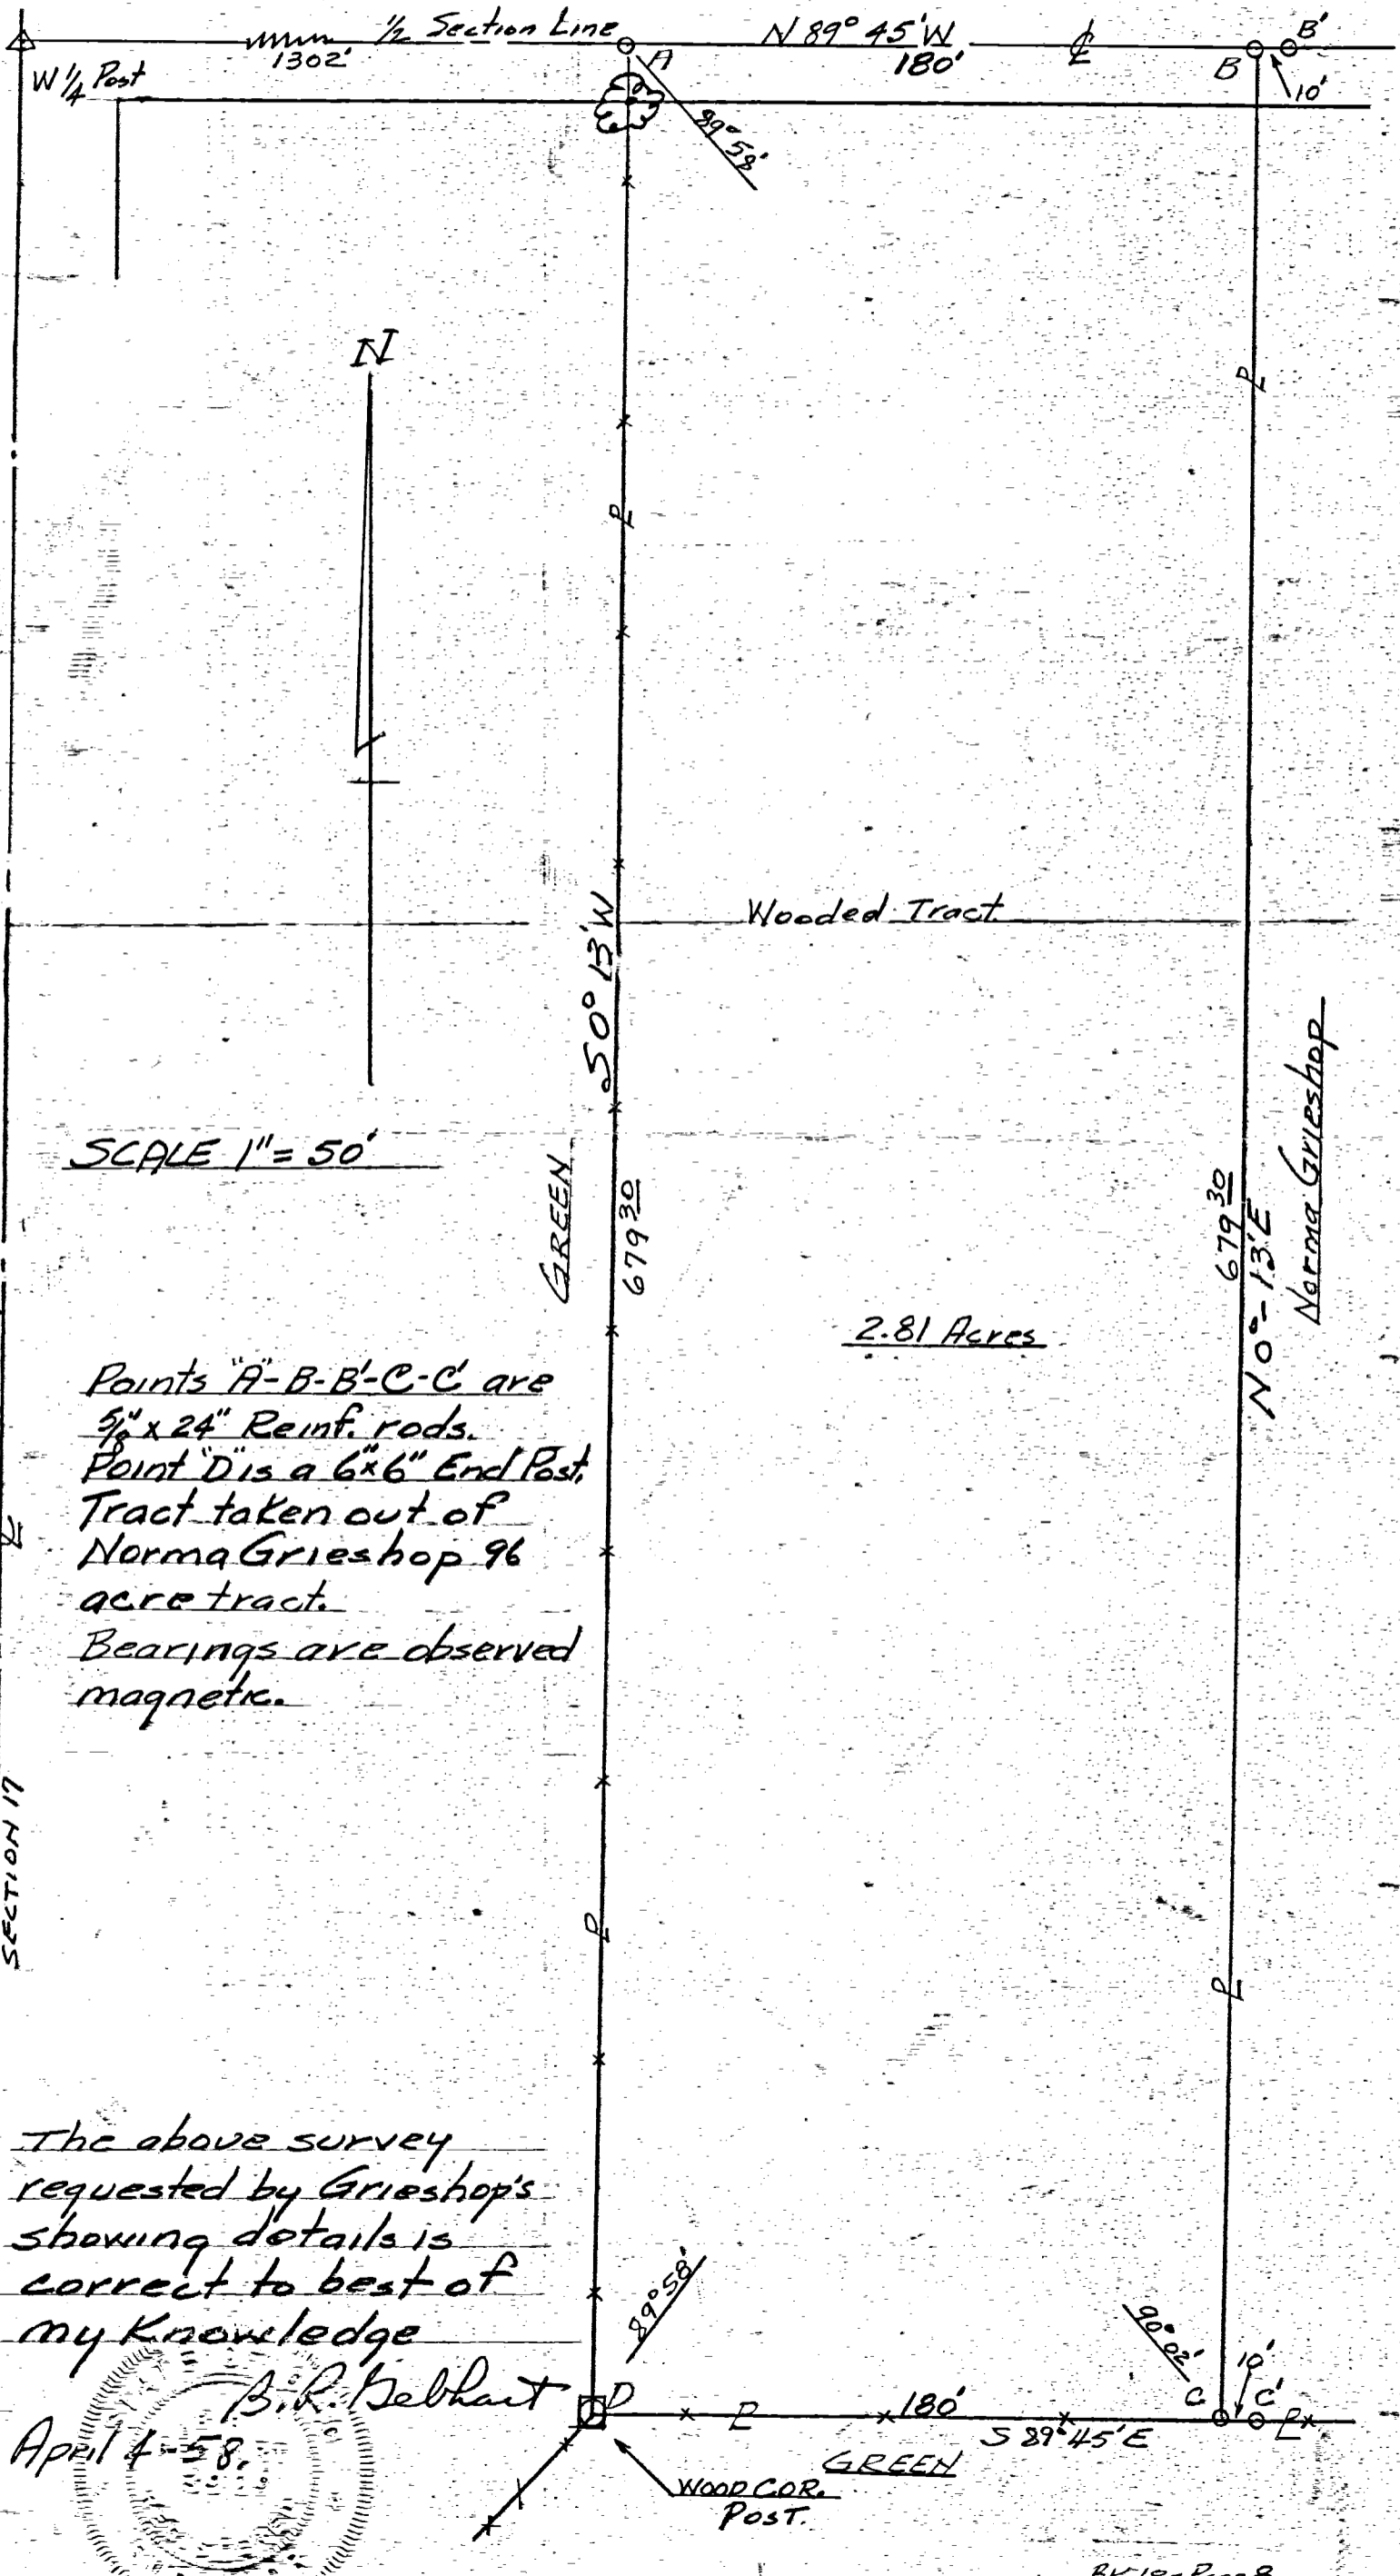 1/2 Section Line
N 89° 45' W
B'
1302'
A
180'
℄
B
W 1/4 Post
10'
89° 58'
N
Wooded Tract
S0° 13' W
SCALE 1" = 50'
GREEN
679 30
679 30
N 0° - 13' E
Norma Grieshop
2.81 Acres
Points "A"-B-B'-C-C' are
5/8" x 24" Reinf. rods.
Point "D" is a 6"x6" End Post.
Tract taken out of
Norma Grieshop 96
acre tract.
Bearings are observed
magnetic.
SECTION 17
The above survey
requested by Grieshop's
showing details is
correct to best of
my Knowledge
B.R. Gebhart
April 4-58.
89° 58'
90° 02'
10'
D
180'
C
C'
S 89° 45' E
GREEN
WOOD COR.
POST.